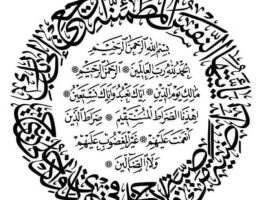 بسم الله الرحمن الرحيم
الحمد لله رب العالمين * الرحمن الرحيم *
مالك يوم الدين * إياك نعبد وإياك نستعين *
اهدنا الصراط المستقيم * صراط الذين
أنعمت عليهم * غير المغضوب عليهم
ولا الضالين
يا أيتها النفس المطمئنة ارجعي